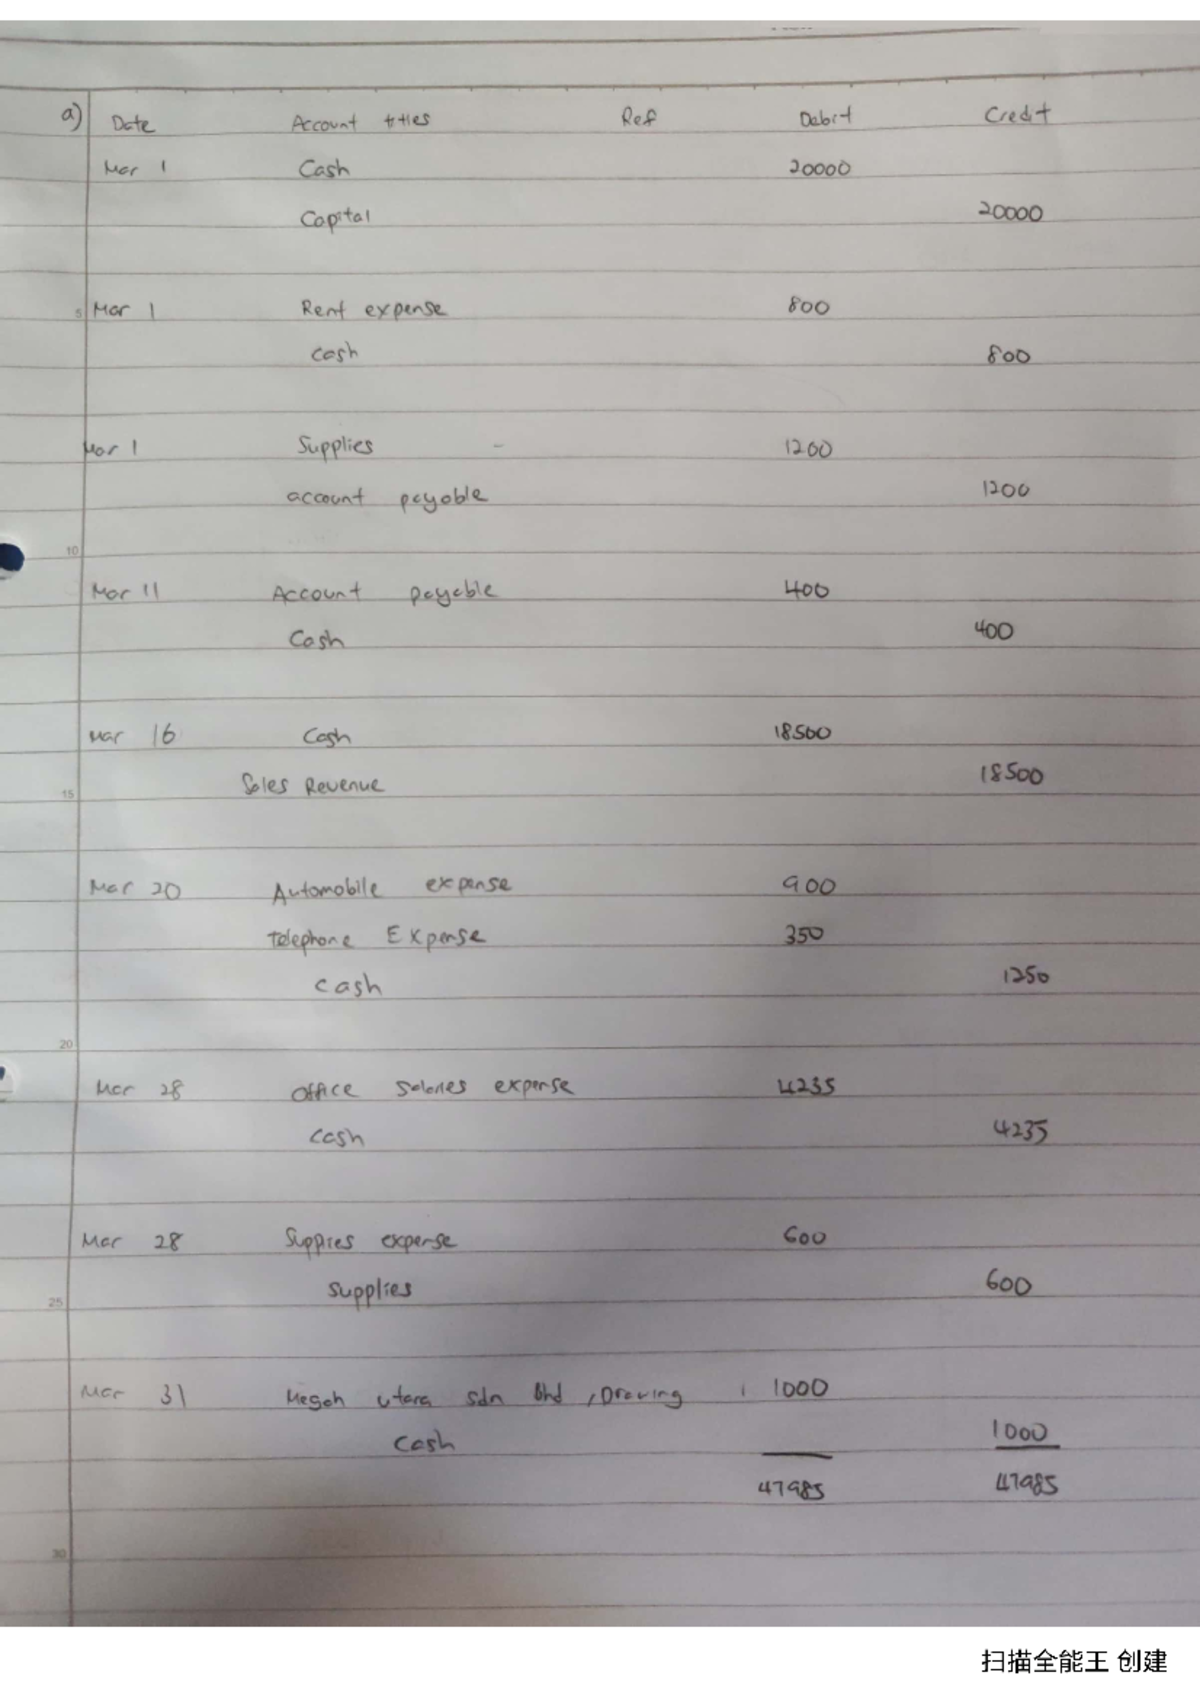 a) Date Account titles Ref Debit Credit
Mar 1 Cash 20000
Capital 20000
5 Mar 1 Rent expense 800
Cash 800
Mar 1 Supplies - 1200
account payable 1200
10
Mar 11 Account payable 400
Cash 400
Mar 16 Cash 18500
Sales Revenue 18500
15
Mar 20 Automobile expense 900
Telephone Expense 350
Cash 1250
20
Mar 28 Office Salaries expense 4235
Cash 4235
Mar 28 Suppies expense 600
Supplies 600
25
Mar 31 Megah utara sdn bhd , Drawing 1000
Cash 1000
47985 47985
30
扫描全能王 创建